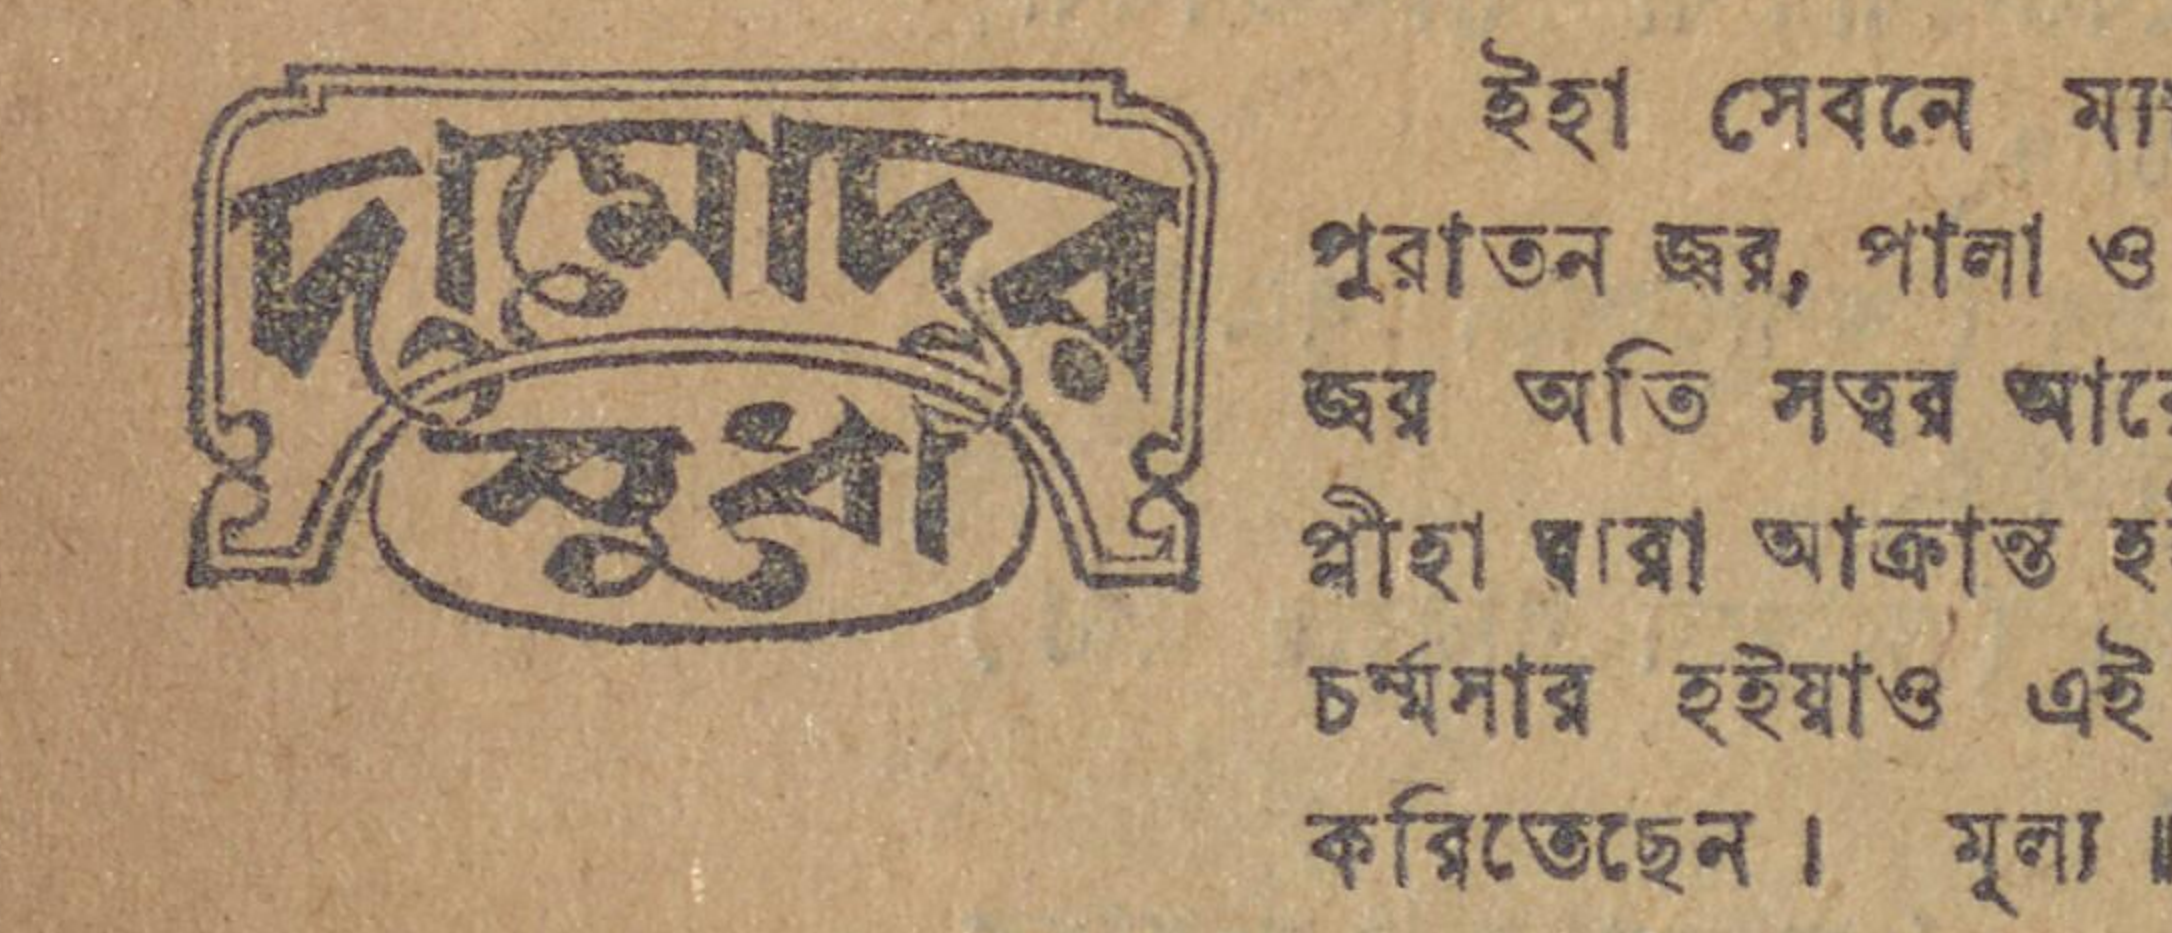 দামোদর
সুধা
ইহা সেবনে
পুরাতন জ্বর, পালা ও
জ্বর অতি সত্বর
প্লীহা দ্বারা আক্রান্ত
চর্ম্মসার হইয়াও এই
করিতেছেন। মূল্য